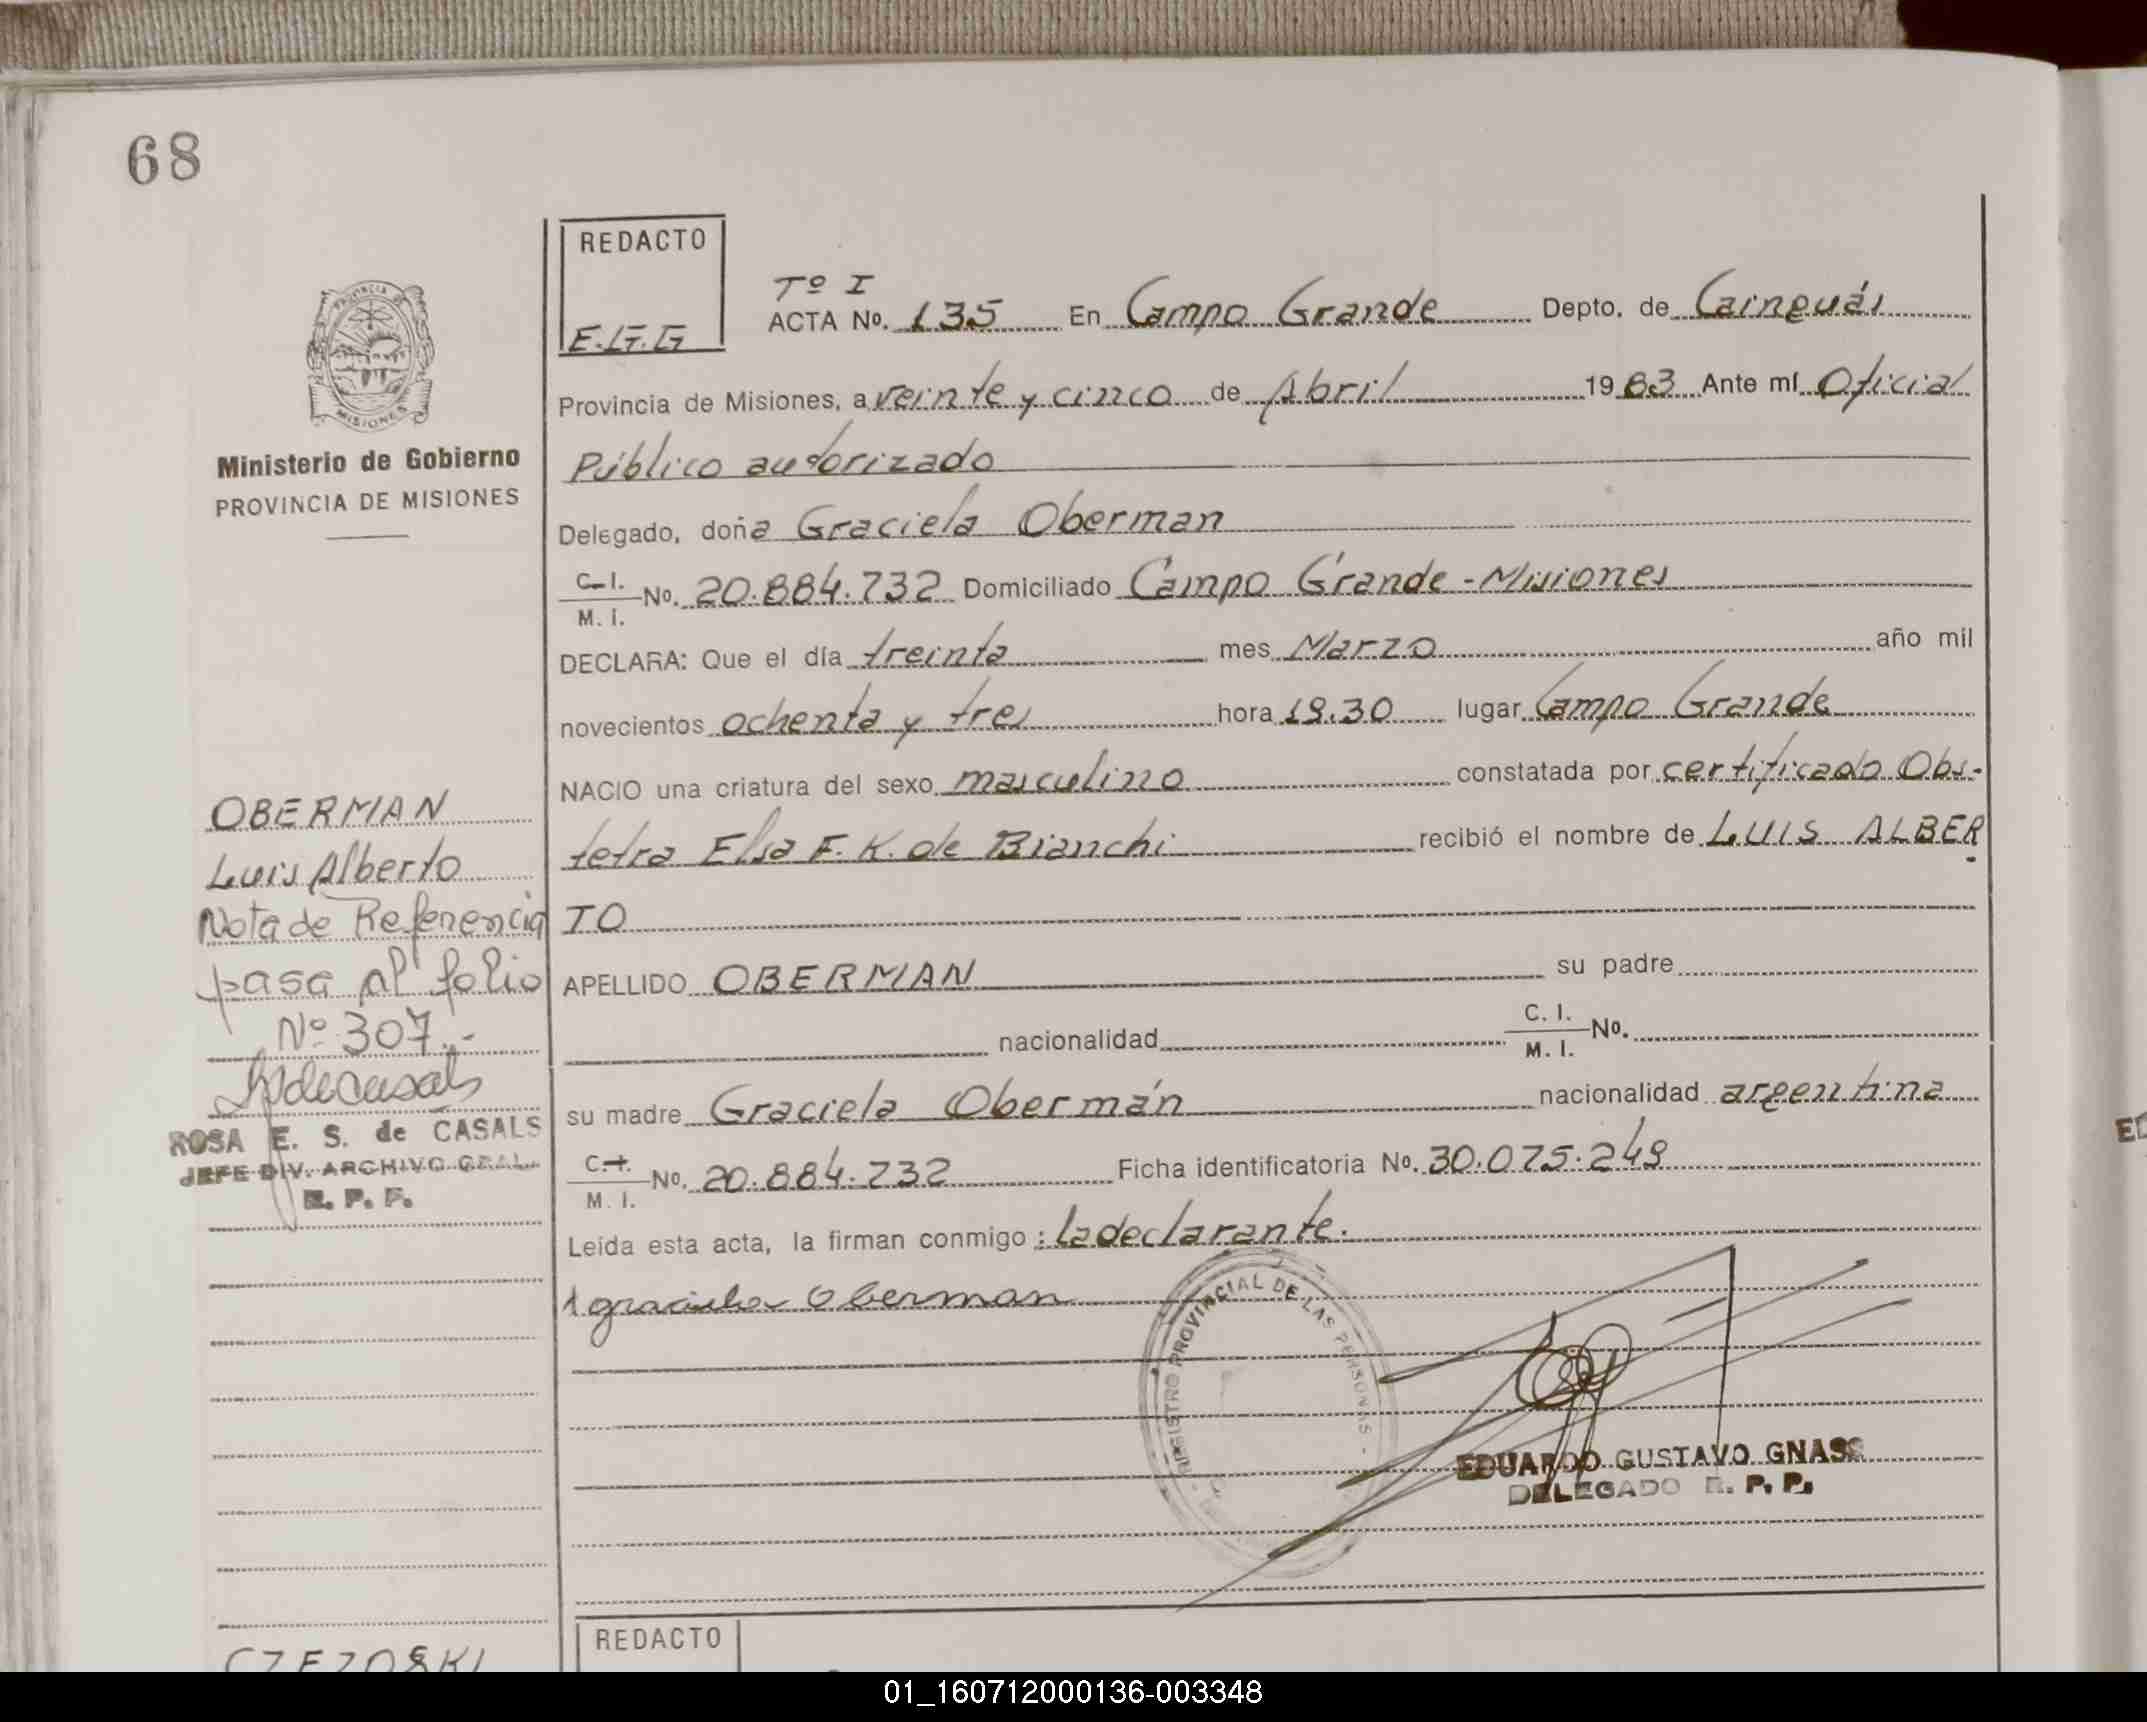 68
PROVINCIA DE
MISIONES
Ministerio de Gobierno
PROVINCIA DE MISIONES
OBERMAN
Luis Alberto
Nota de Referencia
pasa al folio
Nº 307.-
ROSA E. S. de CASALS
JEFE DIV. ARCHIVO GRAL.
R. P. P.
REDACTO
E.G.G
Tº I
ACTA Nº. 135 En Campo Grande Depto. de Cainguás
Provincia de Misiones, a veinte y cinco de Abril 1983 Ante mí Oficial
Público autorizado
Delegado, doña Graciela Oberman
C.I. M.I. Nº. 20.884.732 Domiciliado Campo Grande-Misiones
DECLARA: Que el día treinta mes Marzo año mil
novecientos ochenta y tres hora 19.30 lugar Campo Grande
NACIO una criatura del sexo masculino constatada por certificado Obs-
tetra Elsa F. K. de Bianchi recibió el nombre de LUIS ALBER
TO
APELLIDO OBERMAN su padre
nacionalidad C. I. M. I. Nº.
su madre Graciela Obermán nacionalidad argentina
C.I. M. I. Nº. 20.884.732 Ficha identificatoria Nº. 30.075.249
Leída esta acta, la firman conmigo: la declarante.
graciela Oberman
REGISTRO PROVINCIAL DE LAS PERSONAS
EDUARDO GUSTAVO GNASS
DELEGADO R. P. P.
REDACTO
01_160712000136-003348